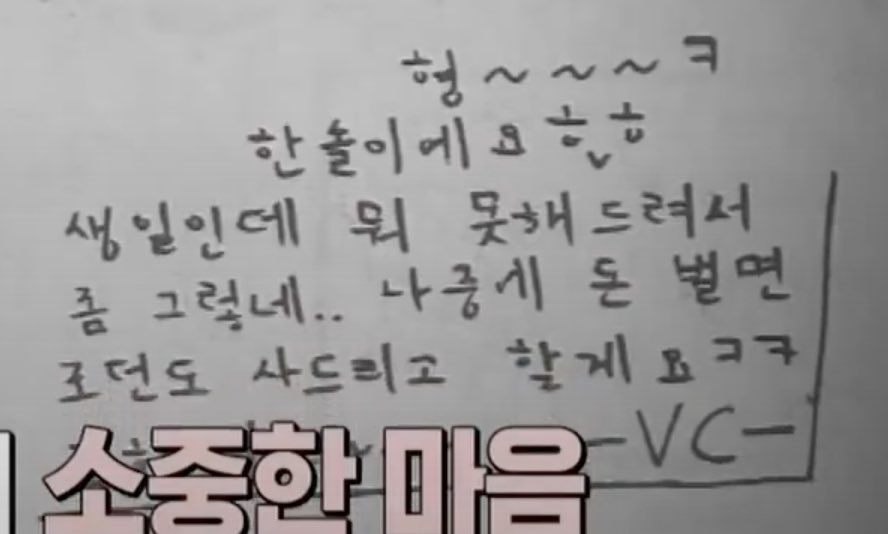 형~~~ㅋ
한솔이에요 흐ᵥ흐
생일인데 뭐 못해드려서
좀 그렇네.. 나중에 돈 벌면
조던도 사드리고 할게요ㅋㅋ
-VC-
소중한 마음